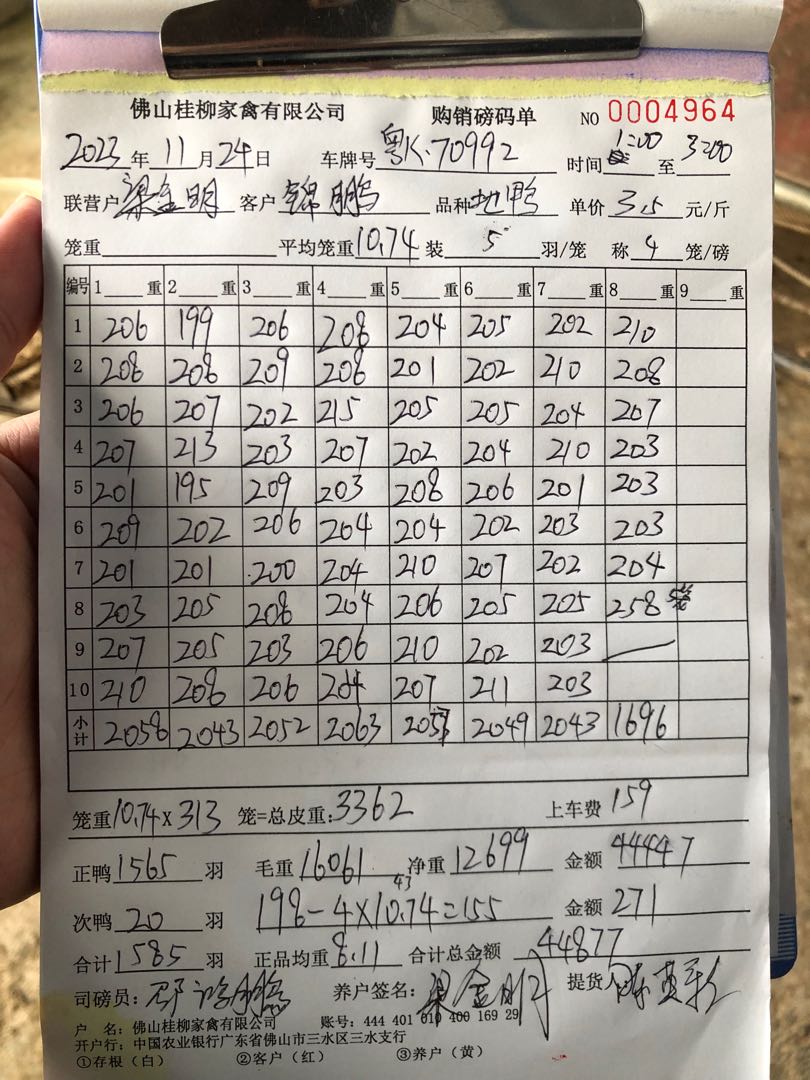 佛山桂柳家禽有限公司 购销磅码单 NO 0004964
2023年11月24日 车牌号 粤K·70992 时间 1:00 至 3:00
联营户 梁金明 客户 锦鹏 品种 地鸭 单价 3.5 元/斤
笼重 平均笼重 10.74 装 5 羽/笼 称 4 笼/磅
编号 1 重 2 重 3 重 4 重 5 重 6 重 7 重 8 重 9 重
1 206 199 206 208 204 205 202 210
2 208 208 209 206 201 202 210 208
3 206 207 202 215 205 205 204 207
4 207 213 203 207 202 204 210 203
5 201 195 209 203 208 206 201 203
6 209 202 206 204 204 202 203 203
7 201 201 200 204 210 207 202 204
8 203 205 208 204 206 205 205 258
9 207 205 203 206 210 202 203 —
10 210 208 206 204 207 211 203
小计 2058 2043 2052 2063 2057 2049 2043 1696
笼重 10.74 x 313 笼=总皮重: 3362 上车费 159
正鸭 1565 羽 毛重 16061 净重 12699 金额 44447
次鸭 20 羽 198-4x10.74=155 43 金额 271
合计 1585 羽 正品均重 8.11 合计总金额 44877
司磅员: 养户签名: 梁金明 提货人
户 名: 佛山桂柳家禽有限公司 账号: 444 401 010 400 169 29
开户行: 中国农业银行广东省佛山市三水区三水支行
①存根（白） ②客户（红） ③养户（黄）